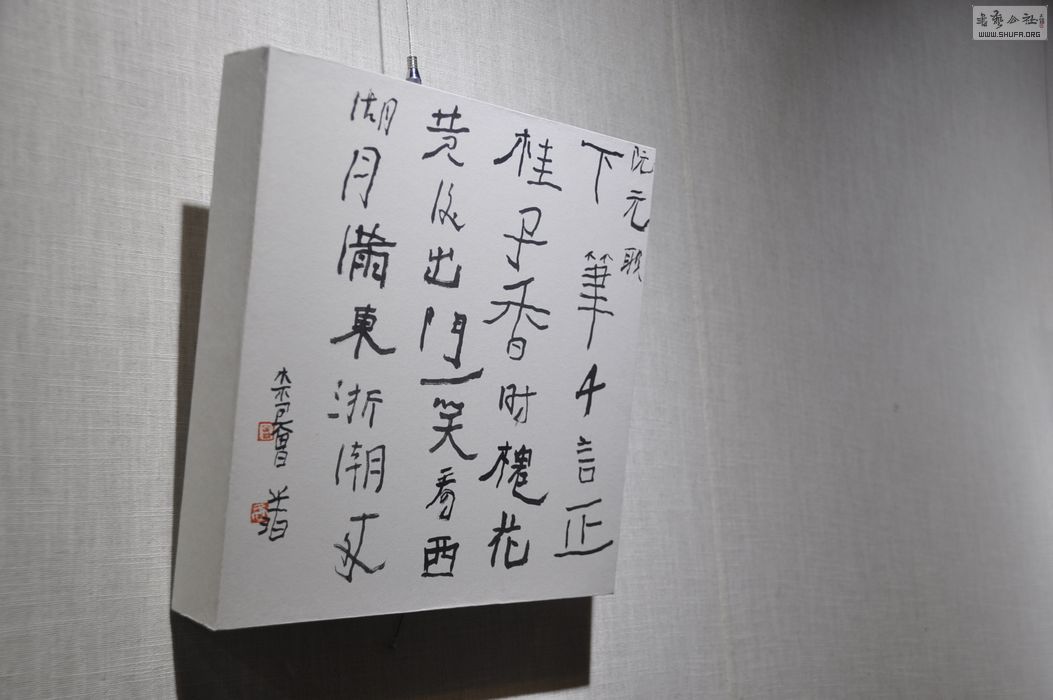 阮元联
下筆千言正
桂子香时槐花
黄後出門一笑看西
湖月滿東浙潮来
書藝公社
WWW.SHUFA.ORG